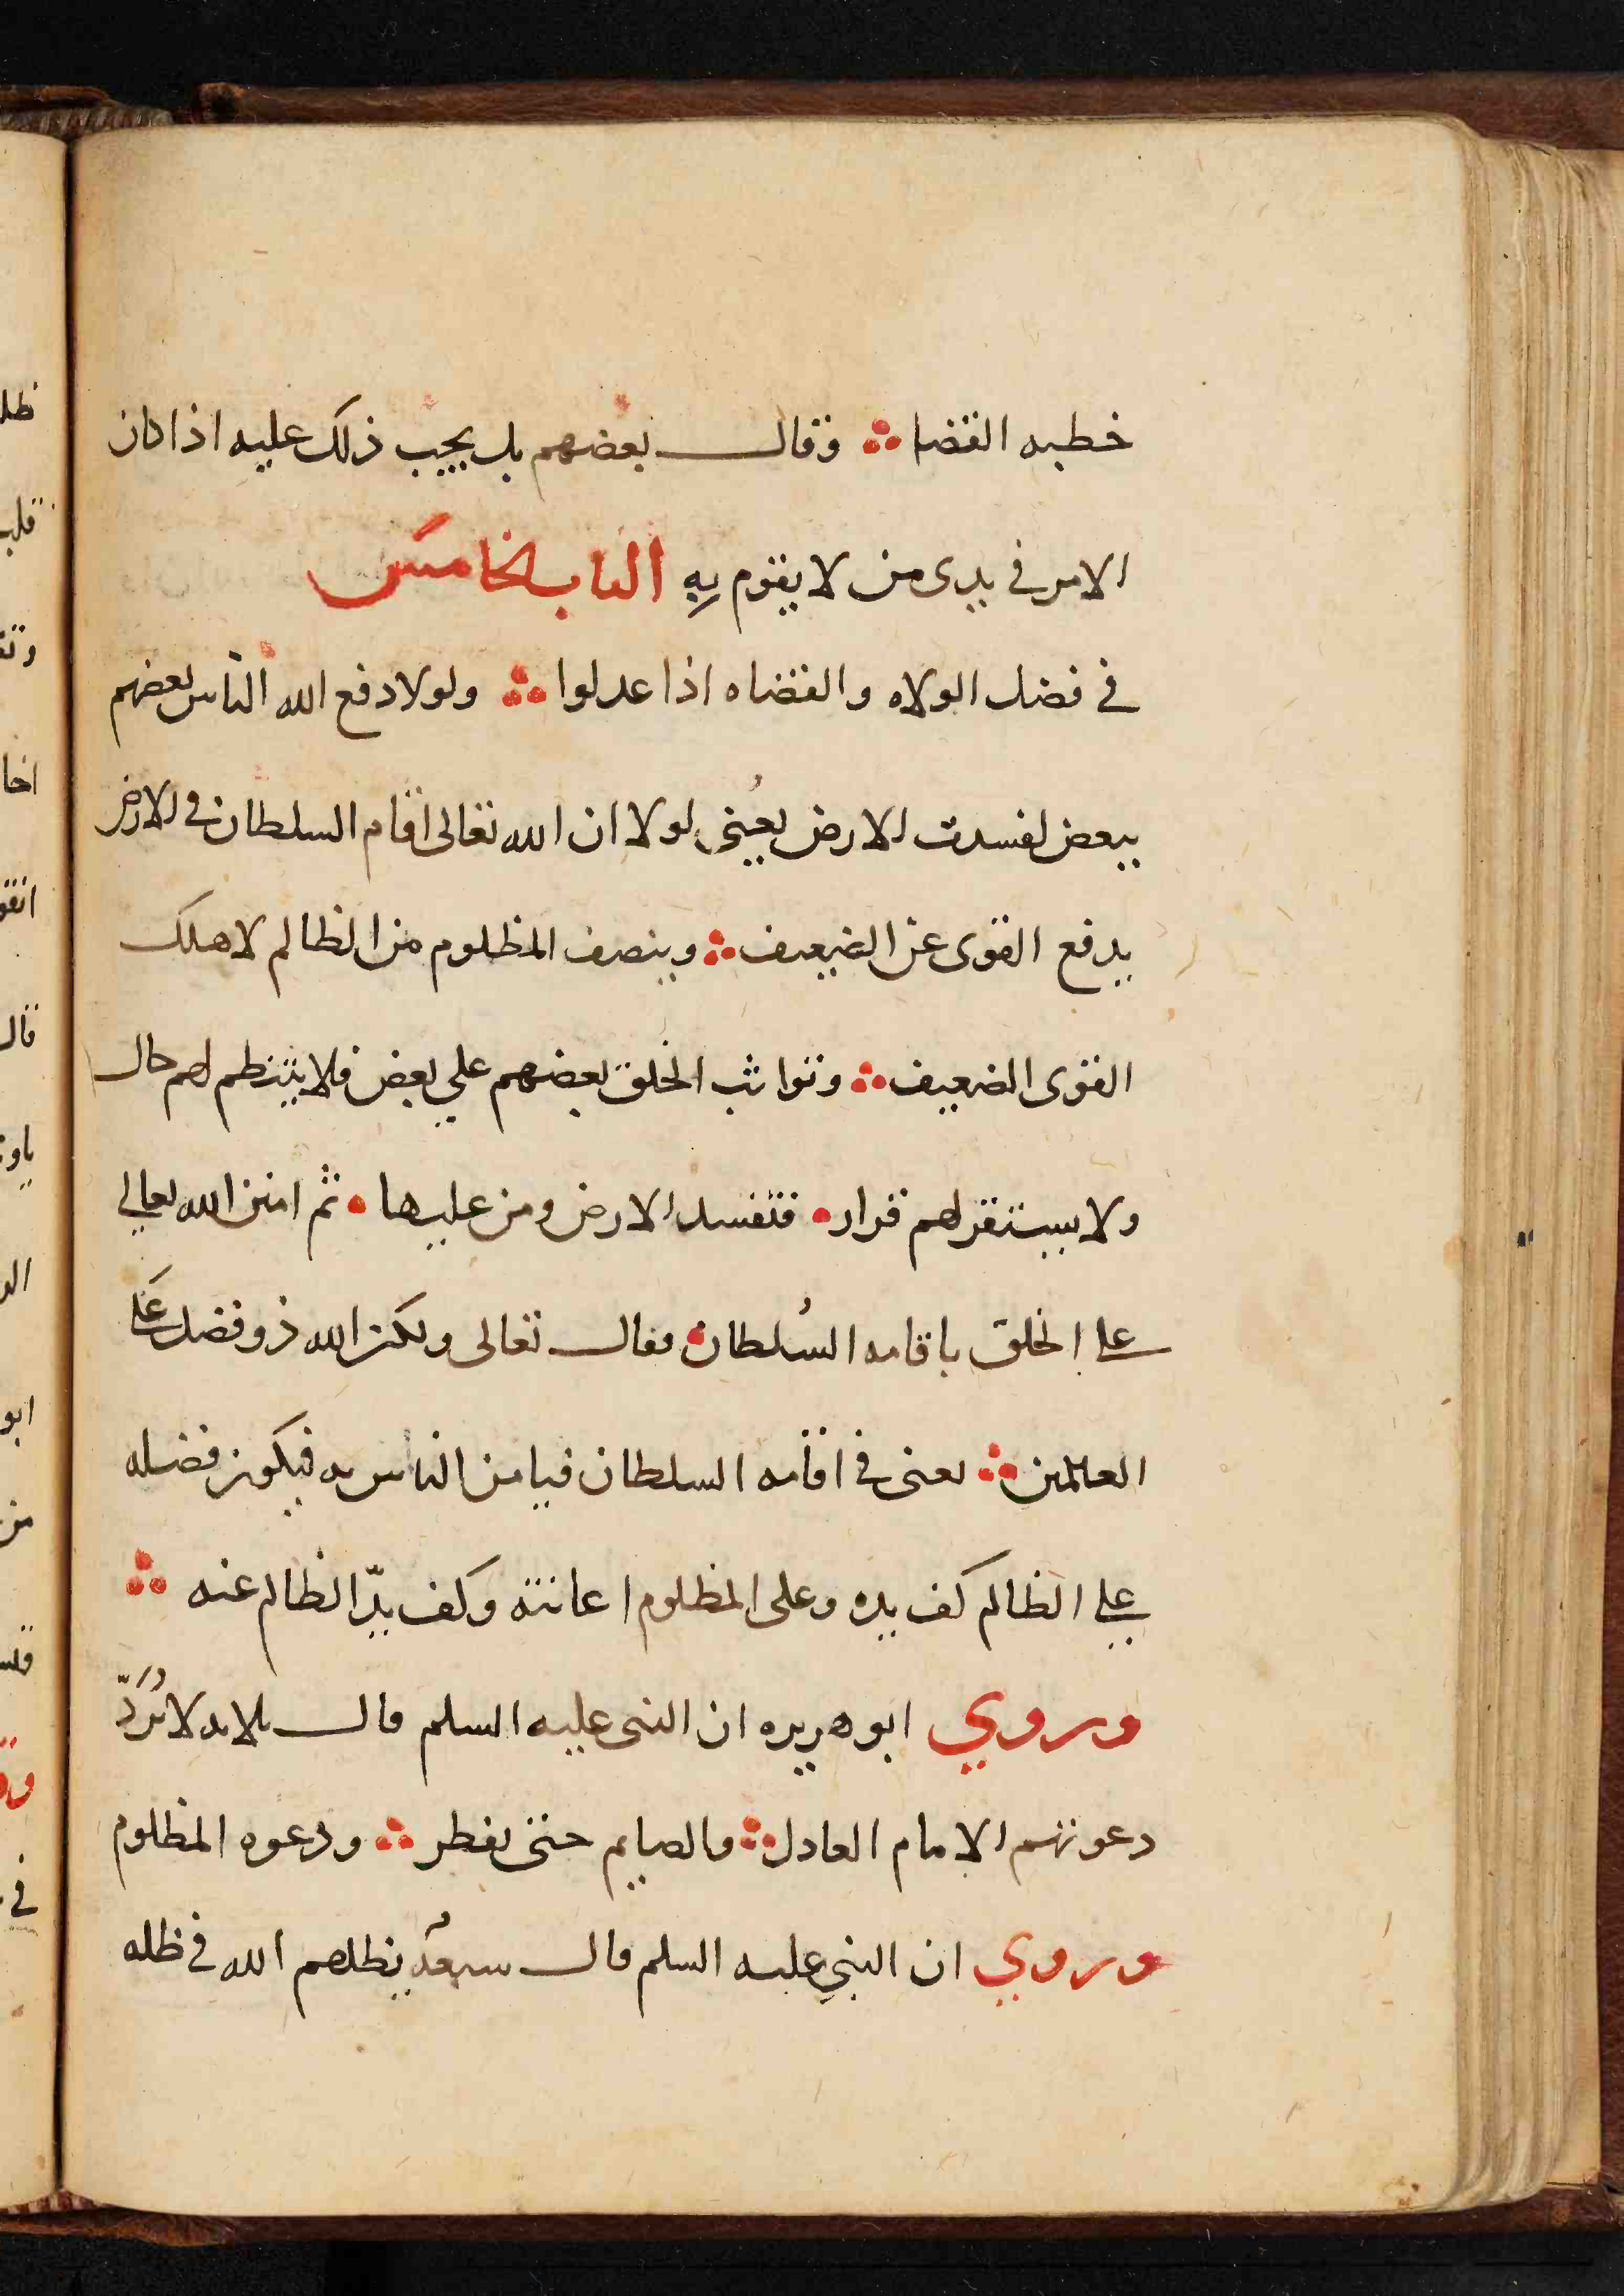 خطبه القضا ∴ وقال بعضهم بل يجب ذلك عليه اذا كان
الامر في يدى من لا يقوم به الباب الخامس
في فضل الولاه والقضاه اذا عدلوا ∴ ولولا دفع الله الناس بعضهم
ببعض لفسدت الارض يعني لولا ان الله تعالى اقام السلطان في الارض
يدفع القوى عن الضعيف ∴ وينصف المظلوم من الظالم لاهلك
القوى الضعيف ∴ وتواثب الخلق بعضهم علي بعض فلا ينتظم لهم حال
ولا يستقر لهم قرار • فتفسد الارض ومن عليها • ثم امتن الله تعالي
على الخلق باقامه السُلطان • فقال تعالى ولكن الله ذو فضل عَلى
العالمين ∴ يعنى في اقامه السلطان فيامن الناس به فيكون فضله
علي الظالم كف يده وعلى المظلوم اعانته وكف يدّ الظالم عنه ∴
وروي ابو هريره ان النبى عليه السلم قال ثلاثه لا تُرَدّ
دعوتهم الامام العادل ∴ والصايم حتى يفطر ∴ ودعوه المظلوم
وروي ان النبي عليه السلم قال سبعهٌ يظلهم الله في ظله